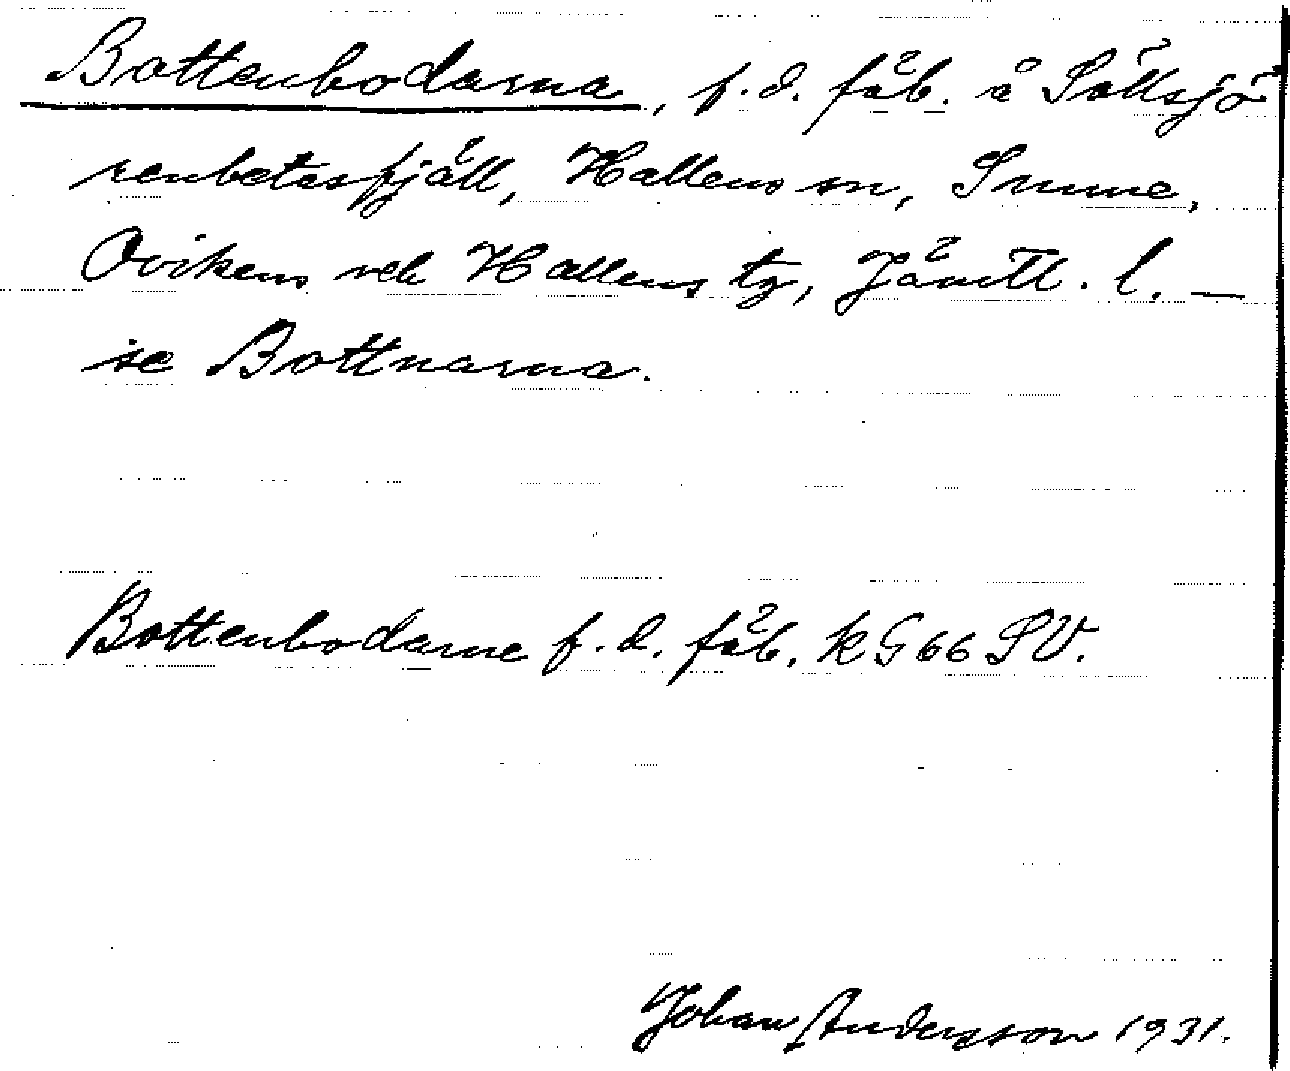 Bottenbodarna, f.d. fäb. å Sällsjö
renbetesfjäll, Hallens sn, Sunne,
Ovikens och Hallens tg, Jämtl. l. —
se Bottnarna.
Bottenbodarne f.d. fäb. k G 66 SV.
Johan Andersson 1931.